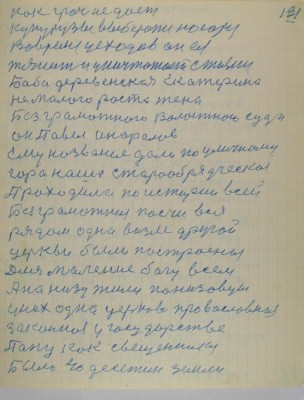 181
как грак не даст
кукурузы выбережи носару
Вовремя уходов он ел
и уничтожал ставни
Баба деревенская Екатерина
не малого роста жена
Безграмотного Волостного судьи
он Павел
Ему название дали по уличному
гора наших старообрядческая
Проходила по истории всей
Безграмотная почти вся
рядом одна возле другой
церкви были построены
Для маление богу всем
А на низу жили понизовцы
у них одна церковь провославная
законная у государстве
Папу как священника
Было 40 десетин земли